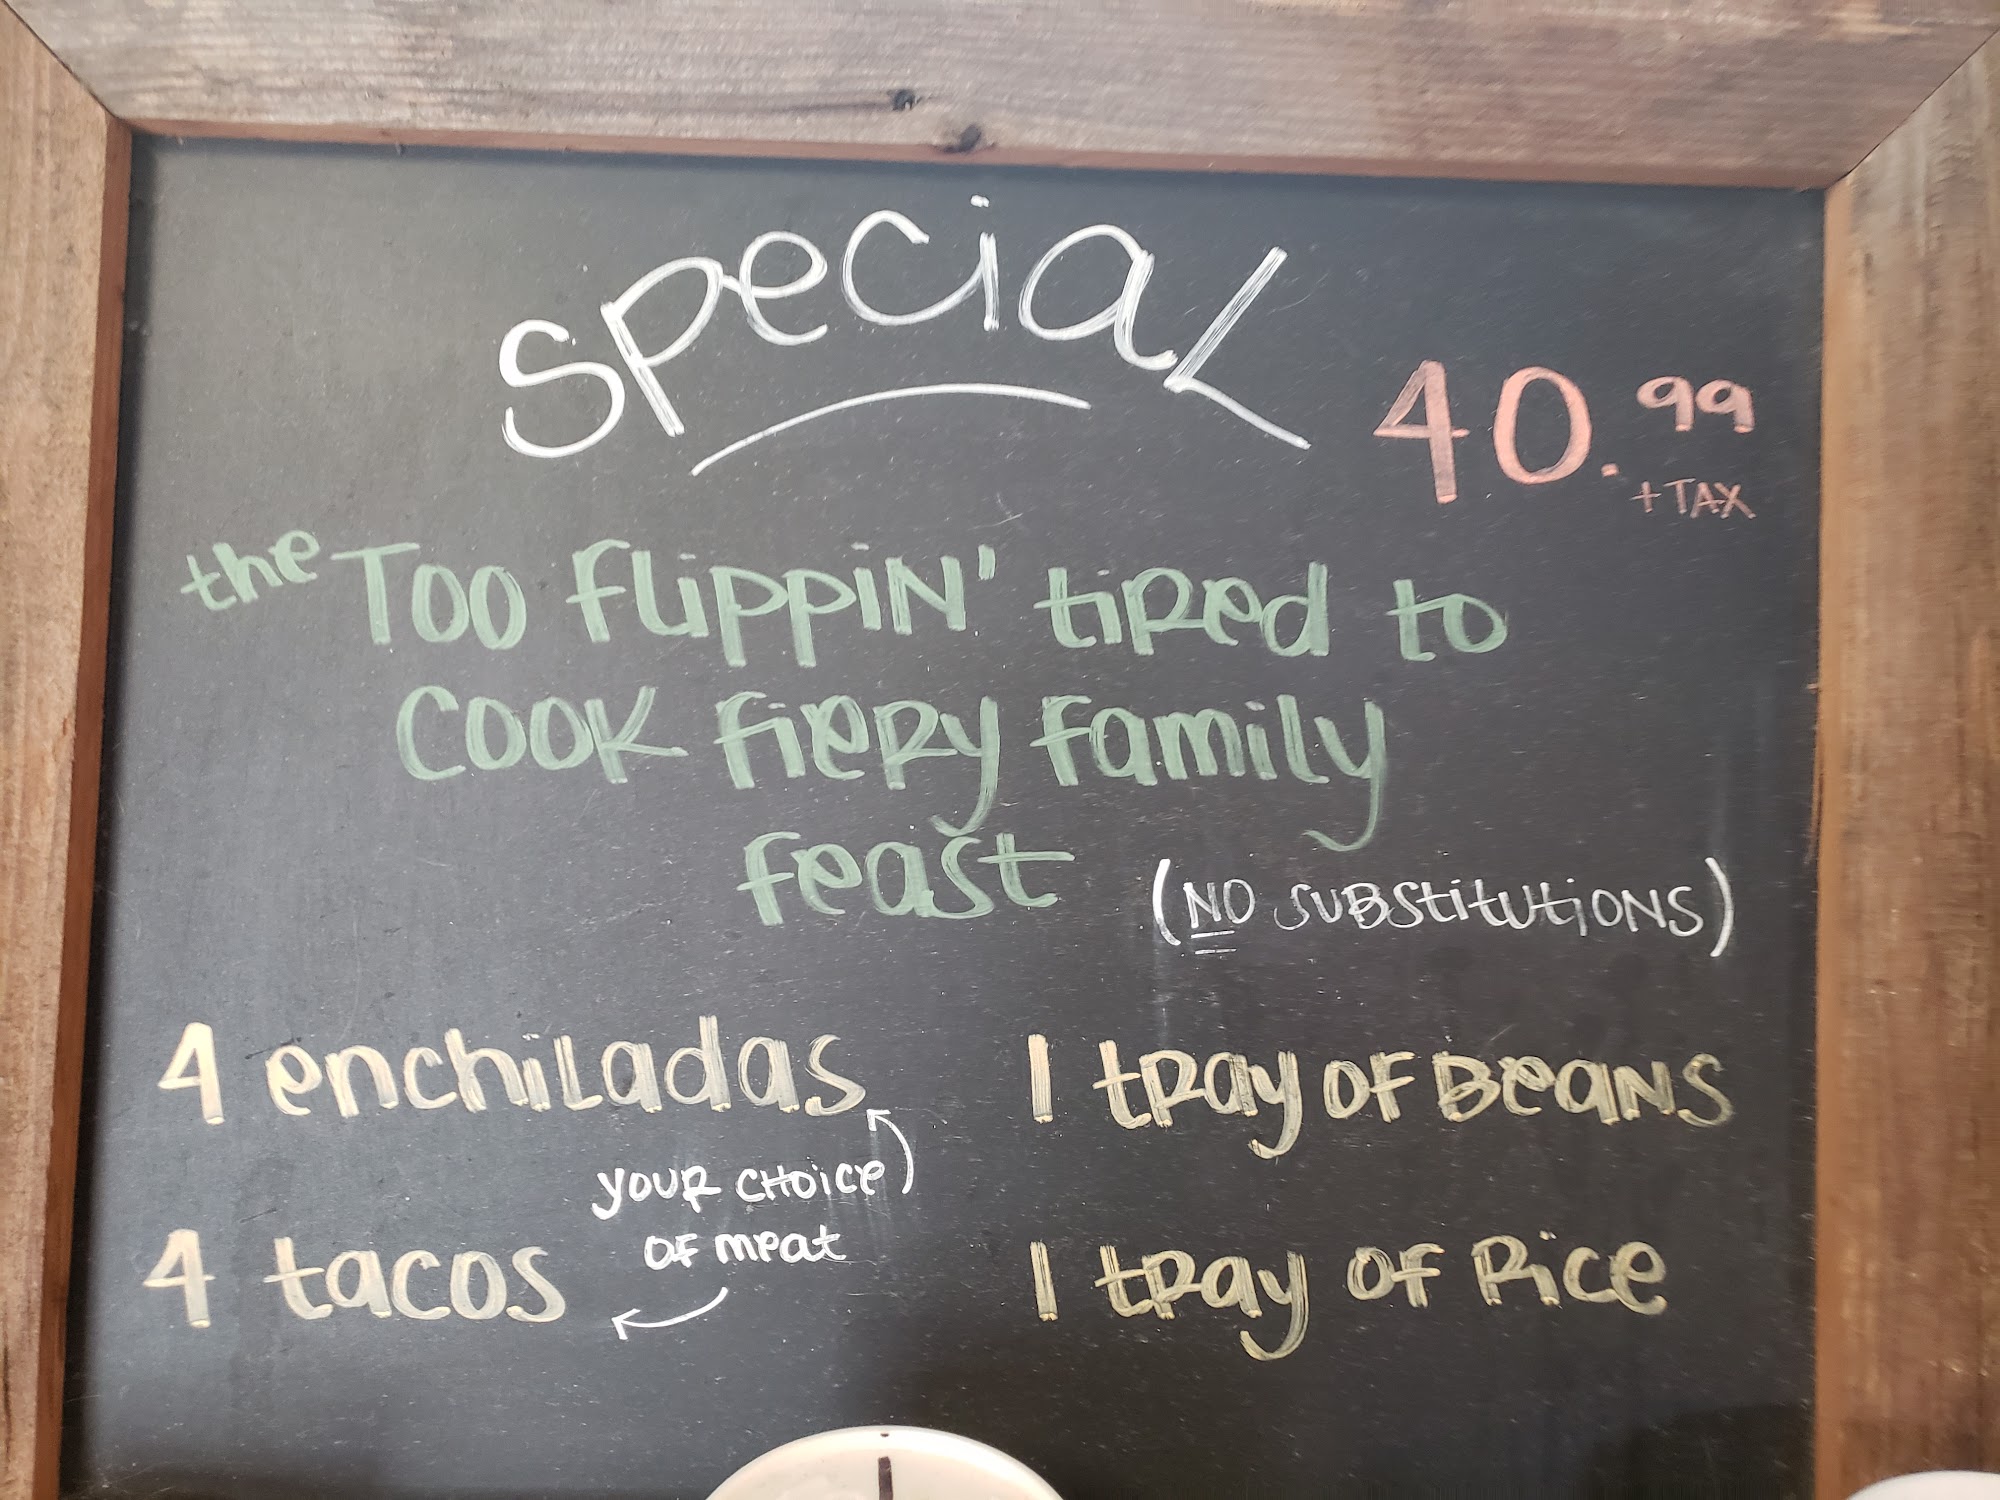 Special
40.99
+ TAX
the Too flippin' tired to
Cook fiery family
feast (NO SUBSTITUTIONS)
4 enchiladas
1 tray of Beans
your choice
of meat
4 tacos
1 tray of Rice